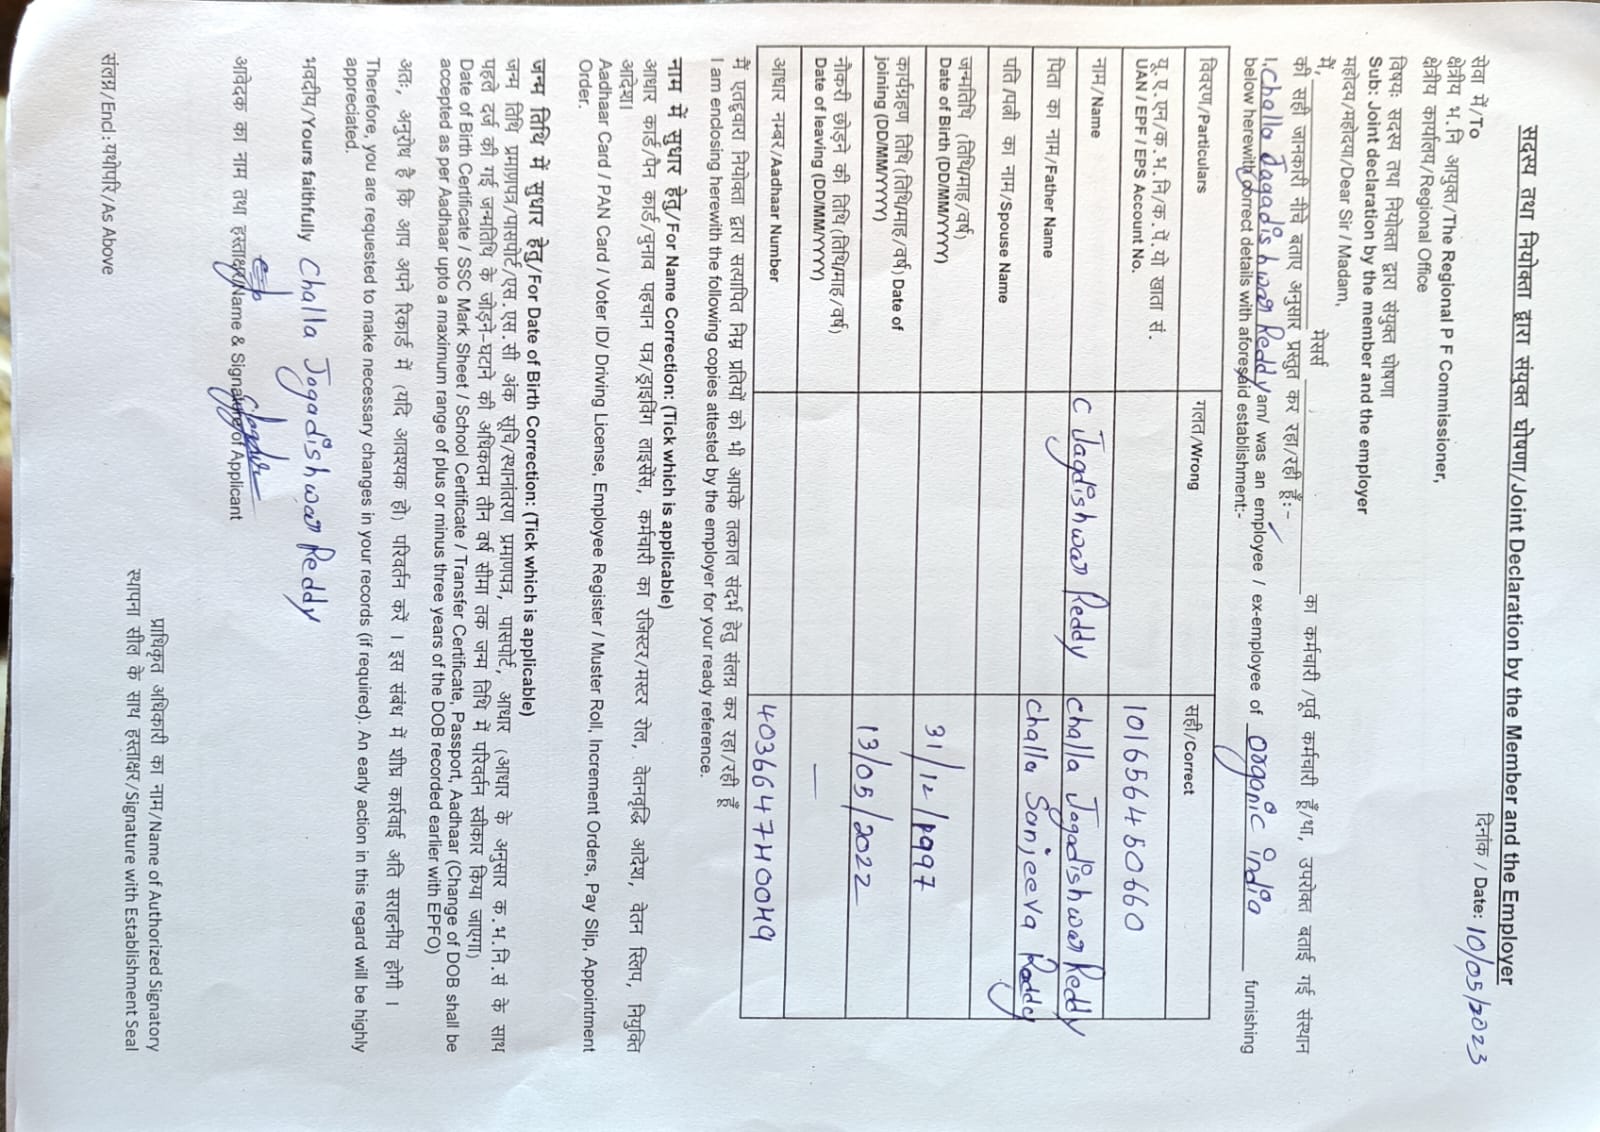 सदस्य तथा नियोक्ता द्वारा संयुक्त घोषणा/Joint Declaration by the Member and the Employer
दिनांक / Date: 10/05/2023
सेवा में/To
क्षेत्रीय भ.नि आयुक्त/The Regional P F Commissioner,
क्षेत्रीय कार्यालय/Regional Office
विषयः सदस्य तथा नियोक्ता द्वारा संयुक्त घोषणा
Sub: Joint declaration by the member and the employer
महोदय/महोदया/Dear Sir / Madam,
मैं, मेसर्स का कर्मचारी /पूर्व कर्मचारी हूँ/था, उपरोक्त बताई गई संस्थान
की सही जानकारी नीचे बताए अनुसार प्रस्तुत कर रहा/रही हूँ:-
I, Challa Jagadishwar Reddy am/ was an employee / ex-employee of organic india furnishing
below herewith correct details with aforesaid establishment:-
विवरण/Particulars गलत/Wrong सही/Correct
यू.ए.एन/क.भ.नि/क.पें.यो खाता सं.
UAN / EPF / EPS Account No. 101656480660
नाम/Name C Jagdishwar Reddy challa Jagadishwar Reddy
पिता का नाम/Father Name challa Sanjeeva Reddy
पति/पत्नी का नाम/Spouse Name
जन्मतिथि (तिथि/माह/वर्ष)
Date of Birth (DD/MM/YYYY) 31/12/1997
कार्यग्रहण तिथि (तिथि/माह/वर्ष) Date of
joining (DD/MM/YYYY) 13/05/2022
नौकरी छोड़ने की तिथि (तिथि/माह/वर्ष)
Date of leaving (DD/MM/YYYY) —
आधार नम्बर/Aadhaar Number 4036647H00H9
मैं एतद्द्वारा नियोक्ता द्वारा सत्यापित निम्न प्रतियों को भी आपके तत्काल संदर्भ हेतु संलग्न कर रहा/रही हूँ
I am enclosing herewith the following copies attested by the employer for your ready reference.
नाम में सुधार हेतु/For Name Correction: (Tick which is applicable)
आधार कार्ड/पैन कार्ड/चुनाव पहचान पत्र/ड्राइविंग लाइसेंस, कर्मचारी का रजिस्टर/मस्टर रोल, वेतनवृद्धि आदेश, वेतन स्लिप, नियुक्ति
आदेश।
Aadhaar Card / PAN Card / Voter ID/ Driving License, Employee Register / Muster Roll, Increment Orders, Pay Slip, Appointment
Order.
जन्म तिथि में सुधार हेतु/For Date of Birth Correction: (Tick which is applicable)
जन्म तिथि प्रमाणपत्र/पासपोर्ट/एस.एस.सी अंक सूचि/स्थानांतरण प्रमाणपत्र, पासपोर्ट, आधार (आधार के अनुसार क.भ.नि.सं के साथ
पहले दर्ज की गई जन्मतिथि के जोड़ने-घटाने की अधिकतम तीन वर्ष सीमा तक जन्म तिथि में परिवर्तन स्वीकार किया जाएगा)
Date of Birth Certificate / SSC Mark Sheet / School Certificate / Transfer Certificate, Passport, Aadhaar (Change of DOB shall be
accepted as per Aadhaar upto a maximum range of plus or minus three years of the DOB recorded earlier with EPFO)
अतः, अनुरोध है कि आप अपने रिकार्ड में (यदि आवश्यक हो) परिवर्तन करें । इस संबंध में शीघ्र कार्रवाई अति सराहनीय होगी ।
Therefore, you are requested to make necessary changes in your records (if required). An early action in this regard will be highly
appreciated.
भवदीय/Yours faithfully Challa Jagadishwar Reddy
आवेदक का नाम तथा हस्ताक्षर/Name & Signature of Applicant
प्राधिकृत अधिकारी का नाम/Name of Authorized Signatory
स्थापना सील के साथ हस्ताक्षर/Signature with Establishment Seal
संलग्न/Encl: यथोपरि/As Above